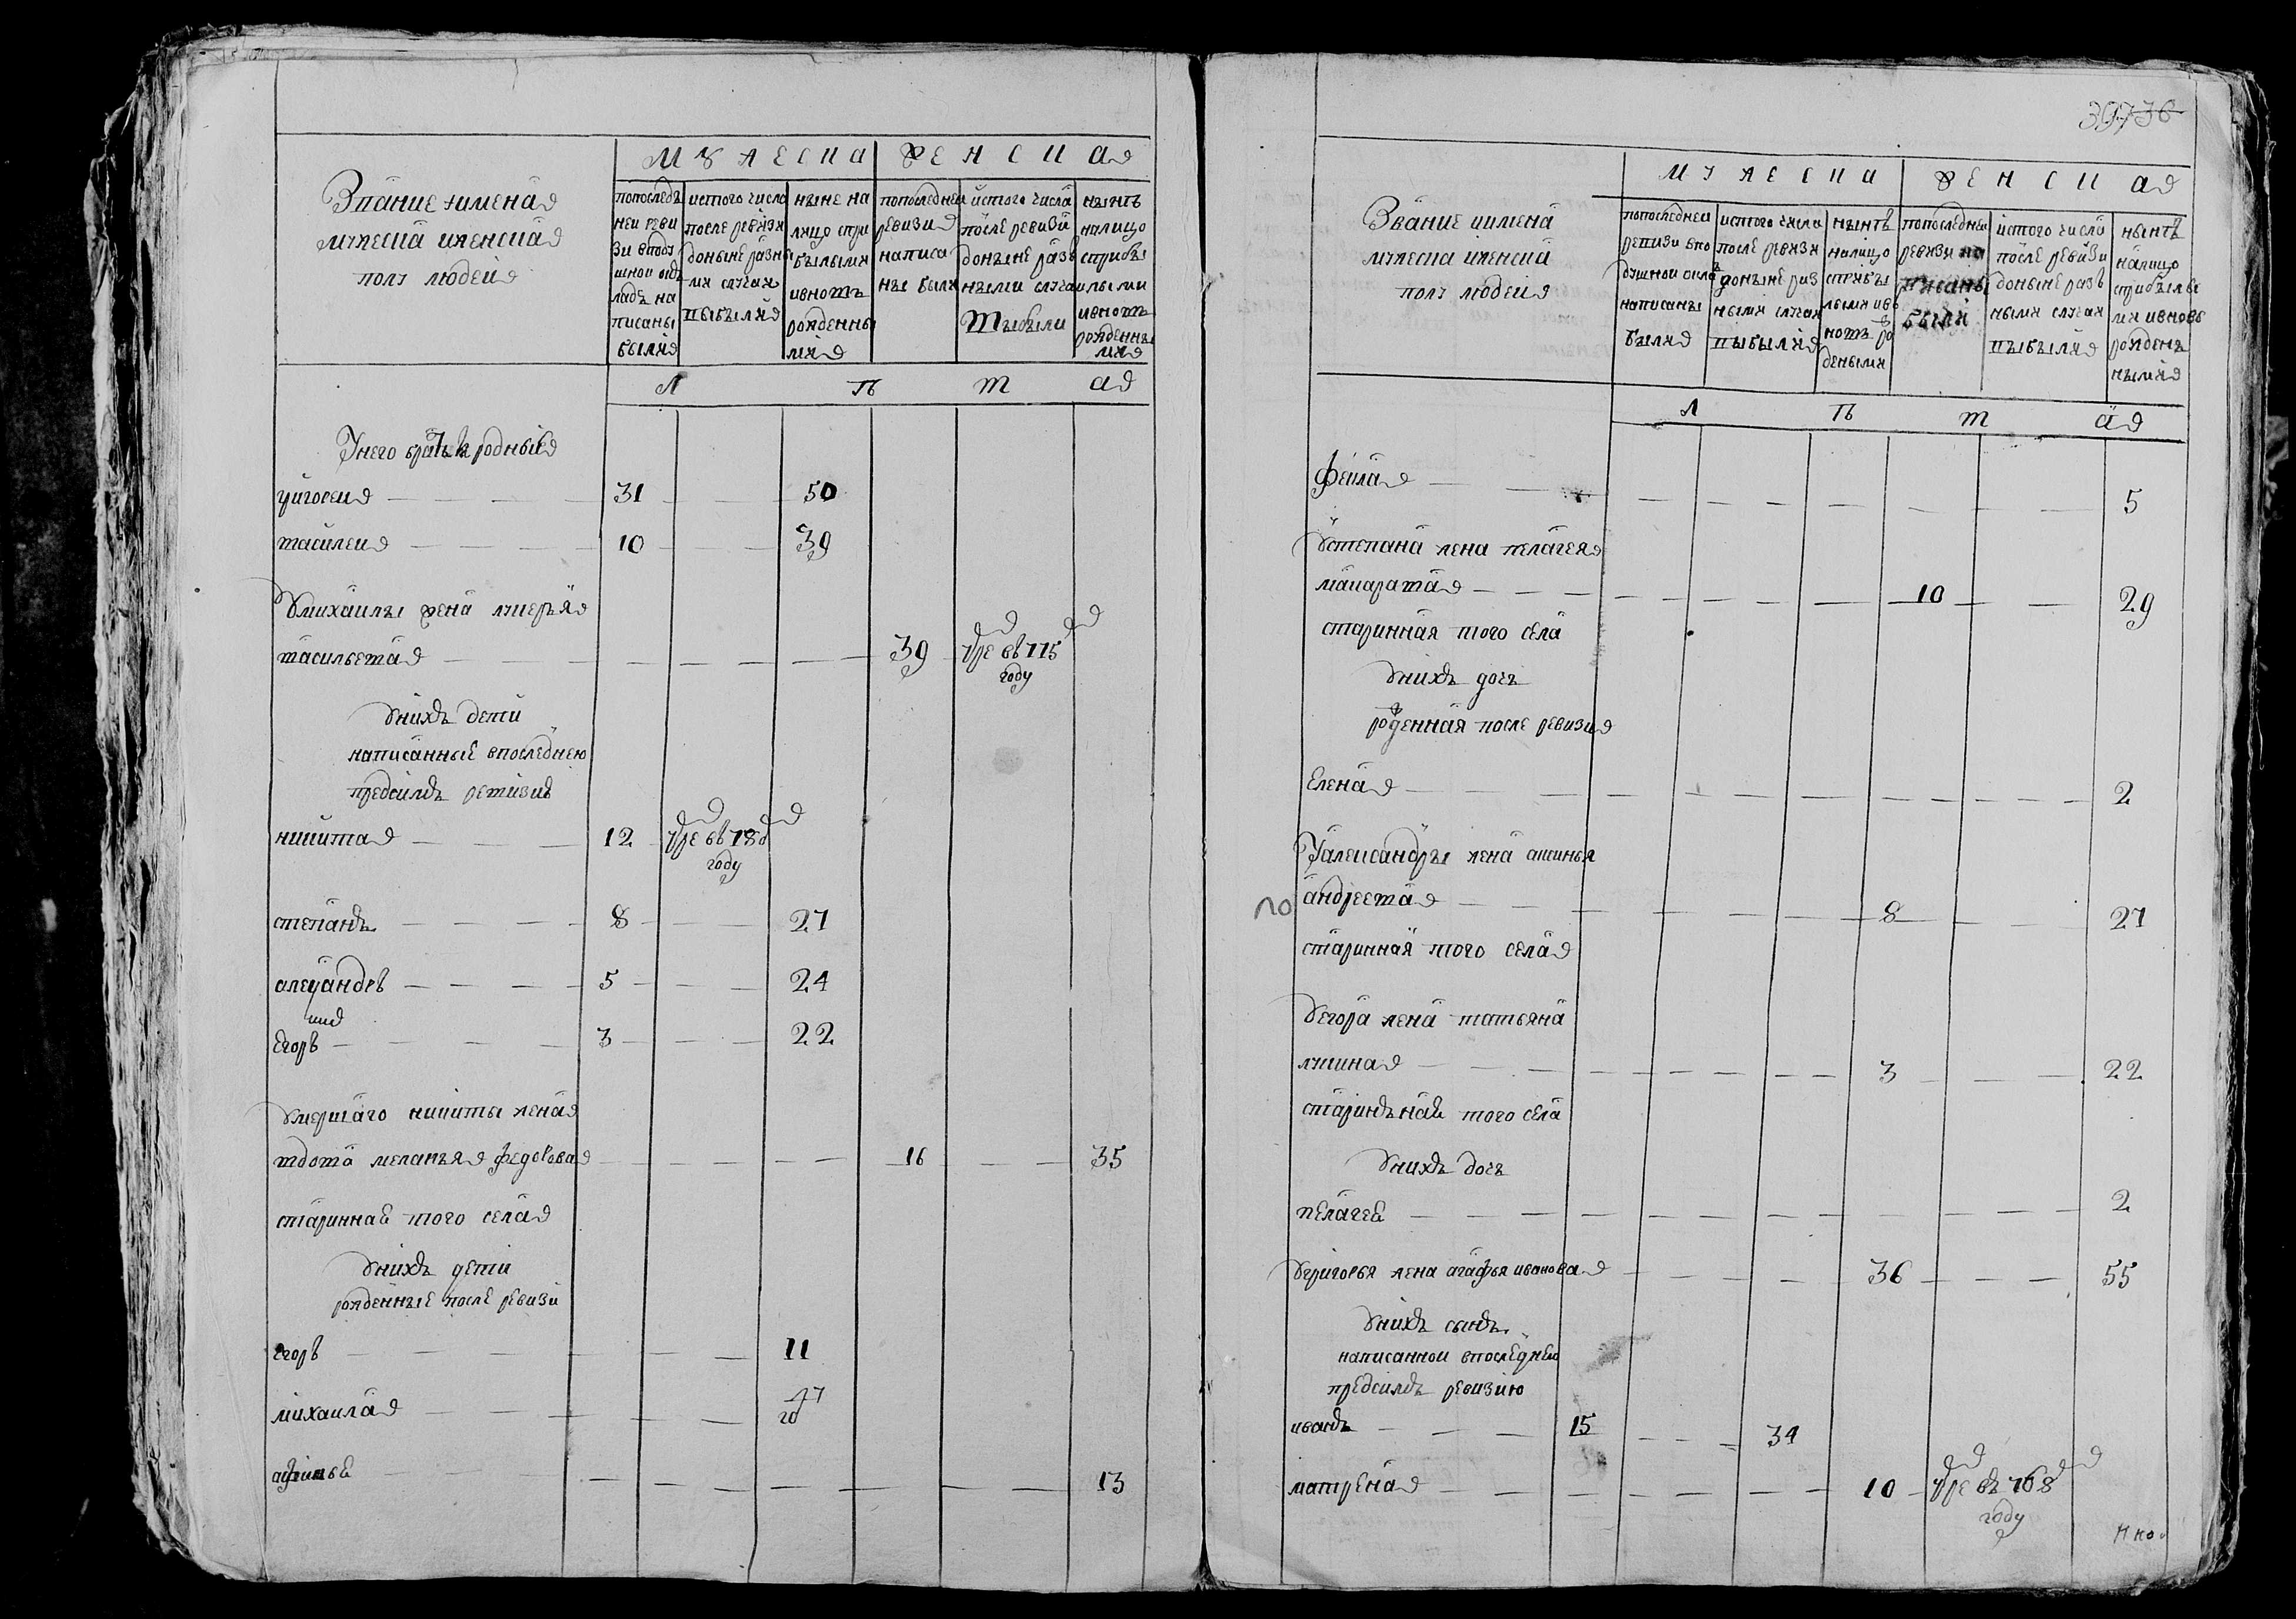 М У Ж Е С К А Ж Е Н С К А
Звание и имена
мужеска и женска
полу людей
по последъ
ней реви
зи в поду
шной окъ
ладъ на
писаны
были
ис того числа
после ревизи
доныне разны
ми случаи
выбыли
ныне на
лицо с при
былыми
и вновь
рожденны
ми
по последней
ревизи
написа
ны были
ис того числа
после ревизи
доныне разъ
ными случаи
выбыли
нынѣ
на лицо
с прибы
лыми
и вновь
рожденны
ми
Л Ѣ Т А
У него братья родныя
григорей 31 50
василей 10 39
У михаилы жена лукерья
васильева 39 умре въ 775
году
У нихъ дети
написанные в последнею
предсимъ ревизию
никита 12 умре въ 780
году
степанъ 8 27
александръ 5 24
егоръ 3 22
Умершаго никиты жена
вдова меланья федорова 16 35
стариннаѣ того села
У нихъ дети
рожденные после ревизи
егоръ 11
михаила
13
М У Ж Е С К А Ж Е Н С К А
Звание и имена
мужеска и женска
полу людей
по последней
ревизи в по
душной окладъ
написаны
были
ис того числа
после ревизи
доныне раз
ными случаи
выбыли
нынѣ
на лицо
с прибы
лыми и в
новь ро
ждеными
по последней
ревизи на
писаны
были
ис того числа
после ревизи
доныне разъ
ными случаи
выбыли
нынѣ
на лицо
с прибылы
ми и вновь
рожденъ
ными
Л Ѣ Т А
фекла 5
У степана жена пелагея
макарава 10 29
старинная того села
У нихъ дочь
рожденная после ревизи
Елена 2
У александры жена аксинья
андреева 8 27
старинная того села
У егора жена татьяна
лукина 3 22
старинънаѣ того села
У нихъ дочь
пелагеѣ 2
У григорья жена агафья иванова 36 55
У нихъ сынъ
написанной в последнею
предсимъ ревизию
иванъ 15 34
матрена 10 умре въ 768
году